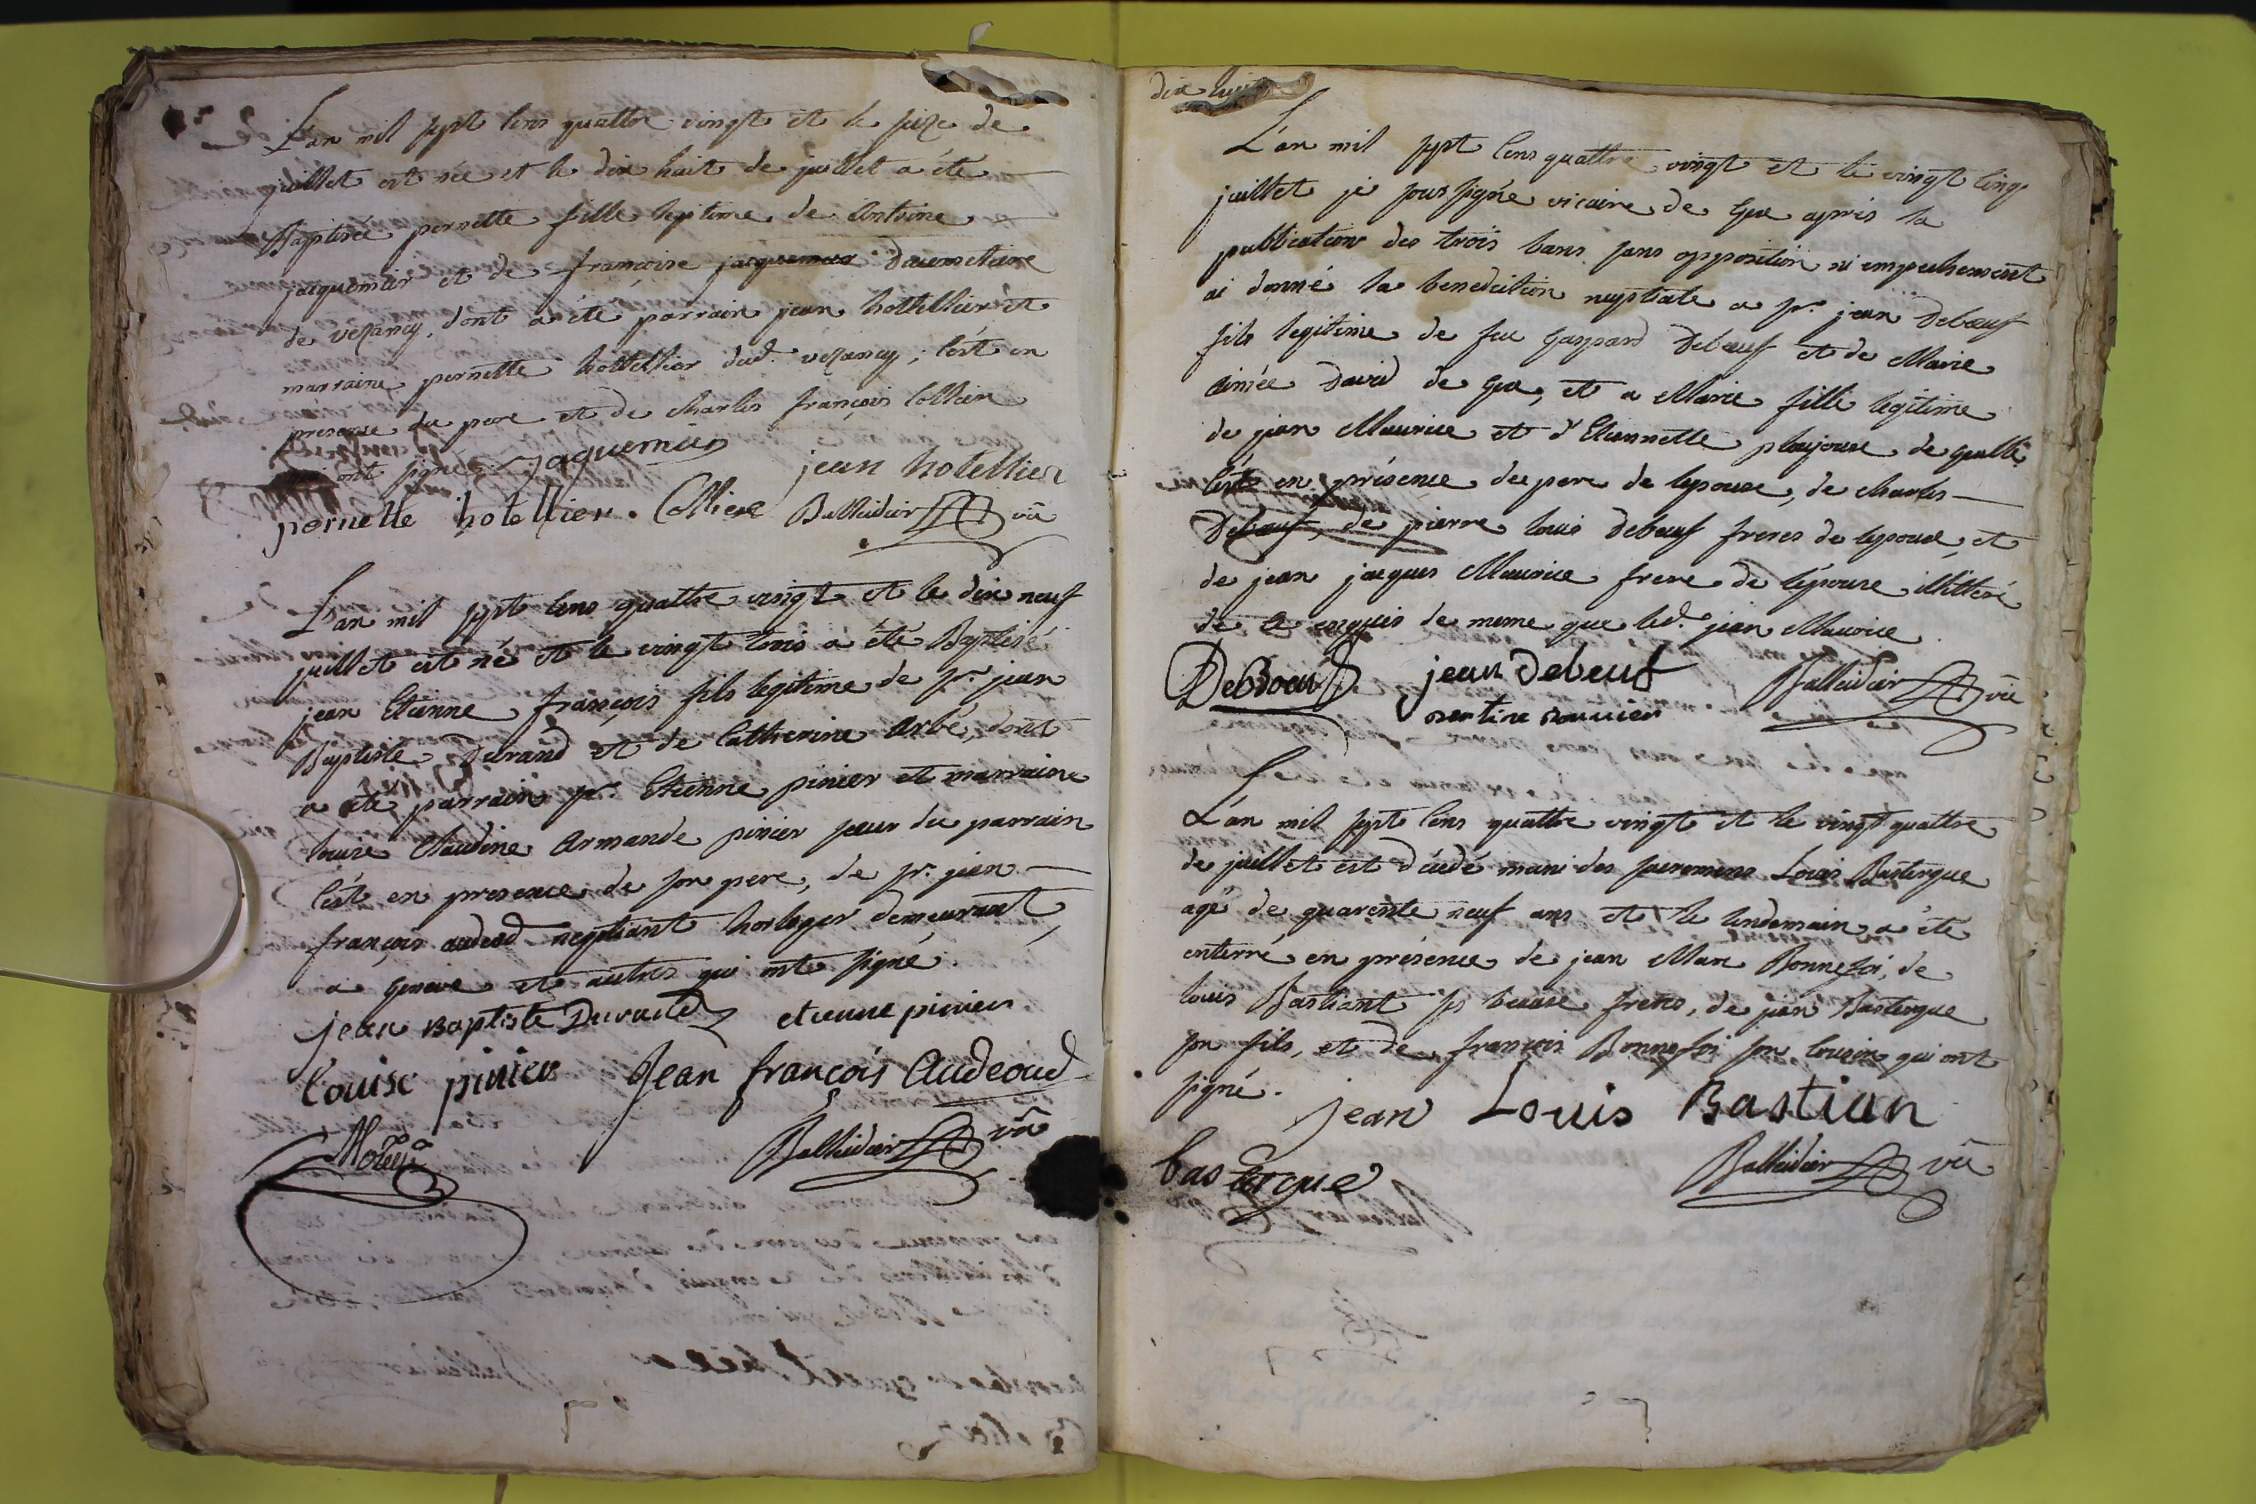 L'an mil sept cens quattre vingt et le seize de
juillet est née et le dix huit de juillet a été
Baptisée pernette fille legitime de Antoine
jaquemier et de françoise
de vezancy, dont a été parrain jean hottellier et
marraine pernette hottellier dud. vezancy; c'est en
presence du pere et de charles françois Collien
ont signé. jaquemier
jean hotellier
pernette hotellier. Balleidier vic
L'an mil sept cens quattre vingt et le dix neuf
juillet est né et le vingt trois a été Baptisé
jean Etienne françois fils legitime de sr. jean
Baptiste Durand et de Catherine Arbé, dont
a été parrain sr. Etienne pinier et marraine
louise Claudine Armande pinier soeur du parrain
c'est en presence de son pere, de sr. jean
françois audeod negotiant horloger demeurant
a Geneve et autres qui ont signé.
jean Baptiste Durand etienne pinier
louise pinier Jean françois Audeoud
Balleidier vic
dix huit
L'an mil sept cens quattre vingt et le vingt cinq
juillet je soussigné vicaire de Gex apres la
publication des trois bans sans opposition ni empechement
ai donné la benediction nuptiale a sr. jean Debœuf
fils legitime de feu Gaspard Debœuf et de Marie
aimée David de Gex, et a Marie fille legitime
de jean Maurice et d'Etiennette de
c'est en présence du pere de lepouse, de charles
Debœuf, de pierre louis debœuf freres de lepoux, et
de jean jacques Maurice frere de lépouse illitteré
de ce enquis de meme que led. jean Maurice.
DeBoeuf jean Debeuf Balleidier vic
L'an mil sept cens quattre vingt et le vingt quattre
de juillet est décédé muni des sacremens Louis Bastergue
agé de quarente neuf ans et le lendemain a été
enterré en présence de jean Marc Bonnefoi, de
louis Bastiant ses beaux freres, de jean Bastergue
son fils, et de françois Bonnefoi son cousin qui ont
signé.
jean Louis Bastian
bastergue Balleidier vic